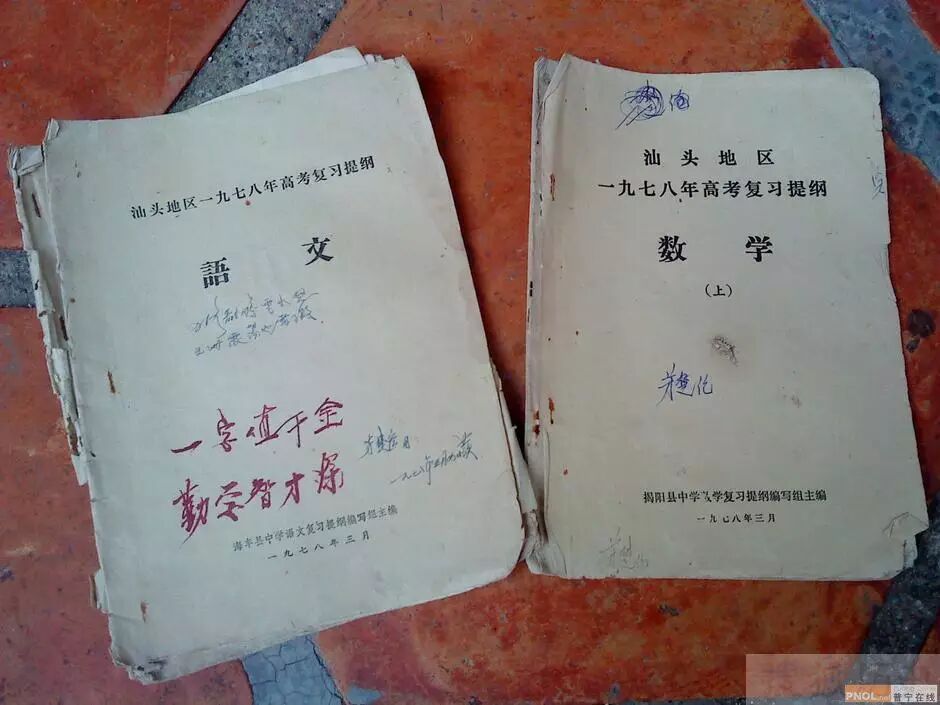 汕头地区一九七八年高考复习提纲
語 文
一字值千金
勤学智才深
海丰县中学语文复习提纲编写组主编
一九七八年三月
伦
汕头地区
一九七八年高考复习提纲
数 学
(上)
楚伦
揭阳县中学数学复习提纲编写组主编
一九七八年三月
PNOL.net 普宁在线